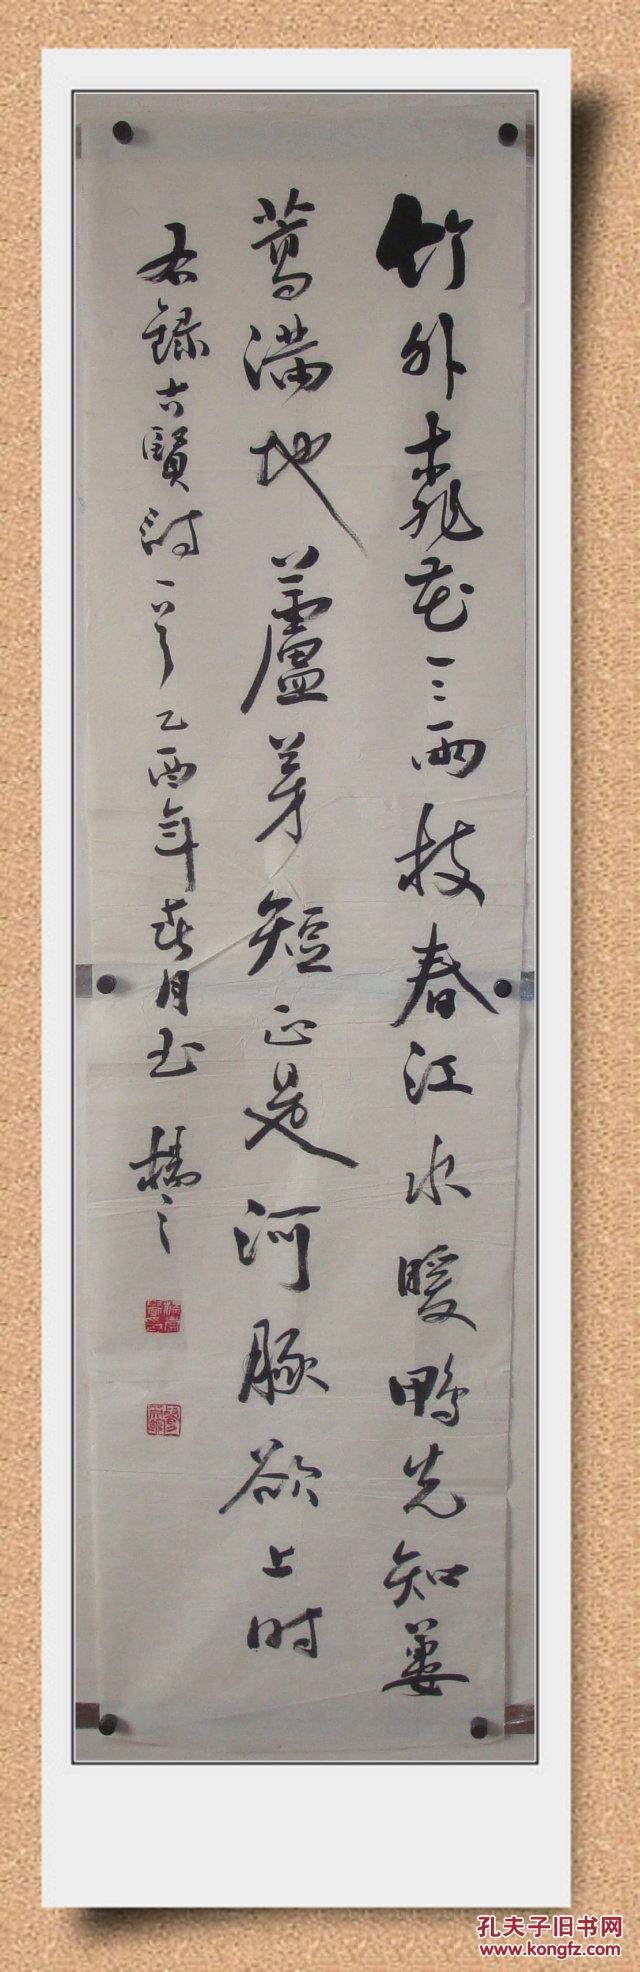 竹外桃花三兩枝春江水暖鴨先知蔞
蒿滿地蘆芽短正是河豚欲上时
右録古賢詩一首乙酉年春月书 楊之
孔夫子旧书网
www.kongfz.com